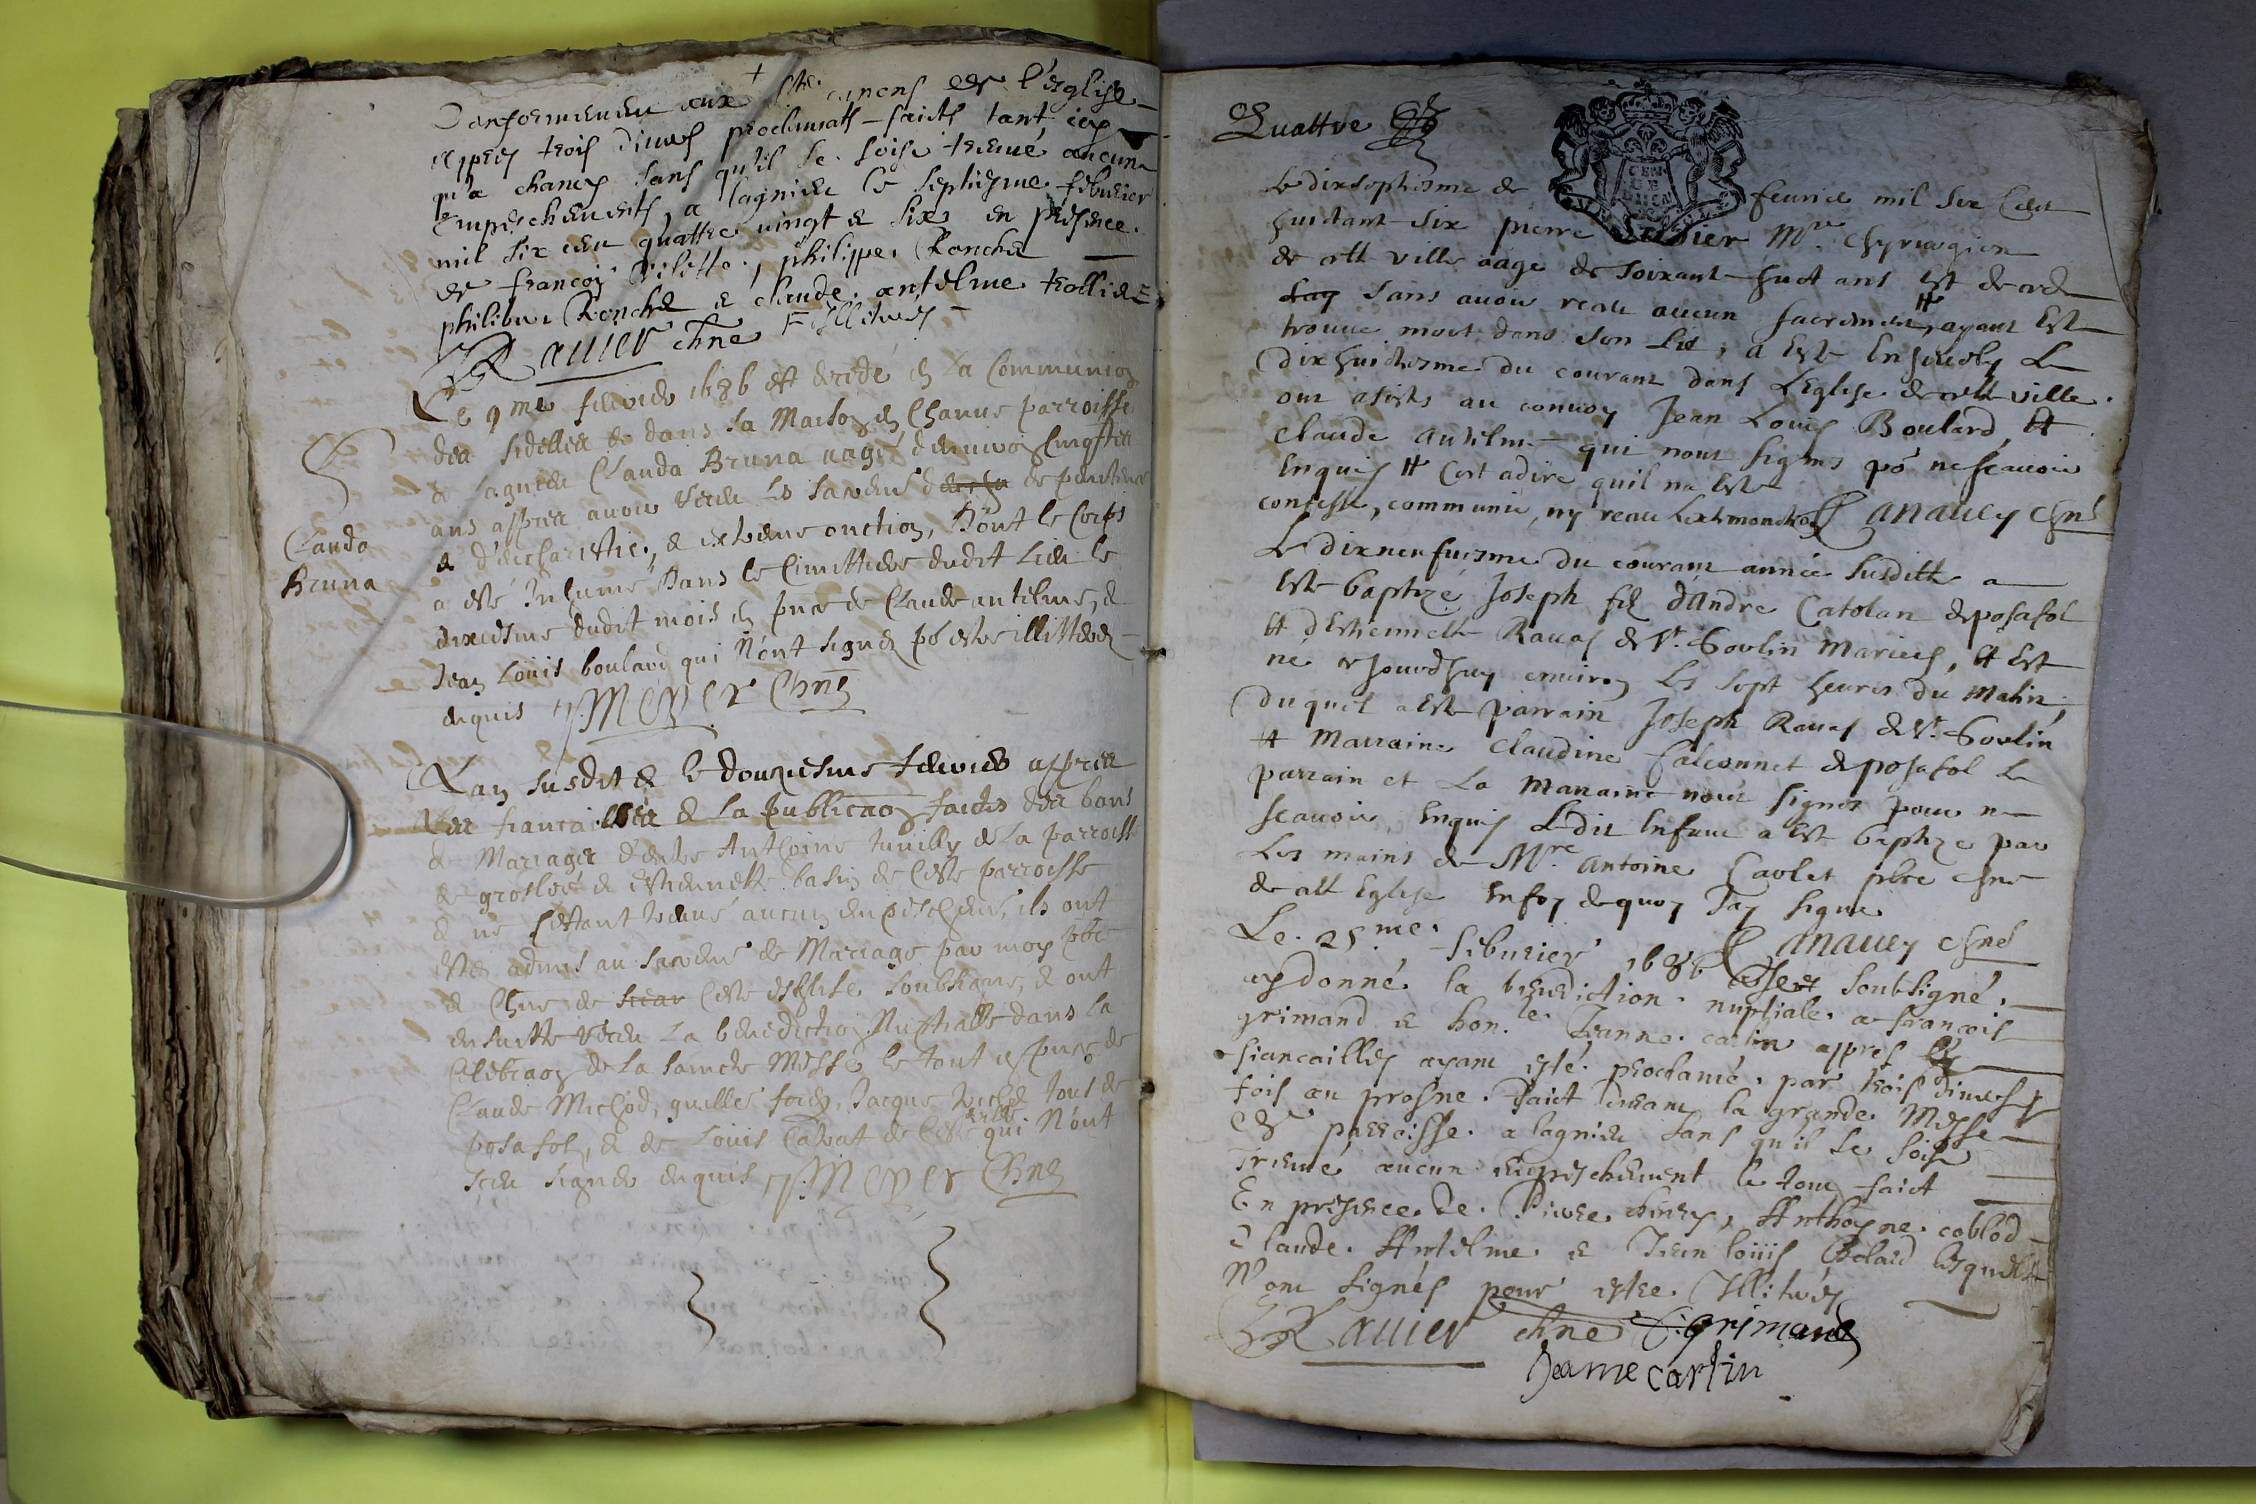 Conformement aux Sts canons de l'esglise
appres trois dimes proclamats faicts tant icy
qu'a chanes sans qu'il se soise treuué aucuns
empeschements, a lagnieu le septiesme feburier
mil six cen quattre vingt & six en presence
de françois, philippe Ronche
philiber Ronche & claude antelme trollier
Rauier chne illitrés
Le 9me feurier 1686 est decedé en la Communion
des fidelles & dans sa Maison en Chanue parroisse
de lagnieu Clauda Bruna aagé denuiron
ans appres auoir receu les sacrem de penitence
& d'eucharistie, & extreme onction, dont le Corps
a esté Inhumé dans le Cimittiere dudit Lieu le
dixiesme dudit mois en pnce de Claude antelme, &
Jean Louis boulard qui n'ont signez po estre illitterez
enquis J. Meyer Chne
Clauda
Bruna
L'an susdit & le douziesme feurier appres
les fiancailles & la publicaon faictes des bans
de Mariages d'entre Anthoine de la parroisse
de groslee & estiennette basin de Ceste parroisse
& ne s'estant treuué aucun empeschem, ils ont
estez admis au sacrem de Mariage par moy pbre
& Chne de Ceste esglise soubsigne, & ont
ensuitte receu la benediction Nuptialle dans la
Celebraon de la saincte Messe le tout en pnce de
Claude Michod, Jacque tous de
posafol, & de Louis de Ceste ville qui n'ont
sceu signer enquis J. Meyer Chne
Quattre
Le dixseptiesme de feurier mil six Cent
huictant six pierre Mre Chyrurgien
de cette ville aage de soixant huict ans est decede
sans auoir receu aucun sacrement, # ayant este
trouue mort dans son lict, a este Enseuely Le
dixhuictiesme du courant dans L'Eglise de cette ville.
ont asistes au conuoy Jean Louis Boulard, et
Claude Antelme qui nont signes po ne scauoir
enquis # C'est adire quil na este
confesse, communie, ny receu lextremonction Canauey Chne
Le dixneufuiesme du courant année susditte a
este baptizé Joseph fils d'Andre Catolan de posafol
et d'Estiennette Rauas de St. Sorlin mariés, et est
né cejourdhuy enuiron les sept heures du Matin,
duquel a este parrain Joseph Rauas de St. Sorlin
et Marraine Claudine Falconnet de posafol le
parrain et la Marraine nont signes pour ne
scauoir, enquis Ledit Enfant a este baptize par
Les mains de Mre Antoine Carlet pbre Chne
de cette Eglise En foy de quoy Jay signe
Canauey chne
Le 25me feburier 1686 soubsigné
ay donné la benediction nuptiale a françois
grimand & hon.le Jeanne cartin appres les
fiancailles ayant esté proclamé par trois dimes
fois au prosne faict deuant la grande Messe
de parroisse a lagnieu sans qu'il se soise
treuué aucun empeschement le tout faict
En presence de Pierre, Anthoyne coblod
Claude Antelme & Jean louis Bolard lesquels
N'ont signés pour estre Illitrés
Rauier chne grimand
Jeanne cartin